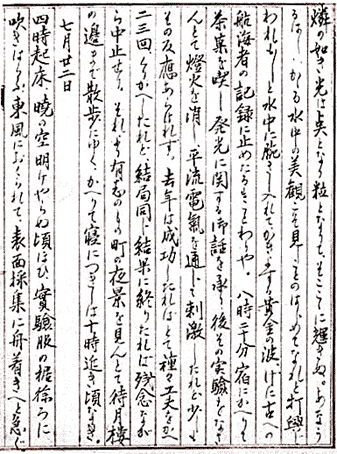 燐の如き光は点となり粒となりて、そこここに輝きぬ。あなう
るはし、かゝる水中の美観を見しものはじめてなれと打興じ
われ少しと水中に腕さし入れてかきまはす黄金の波げに古への
航海者の記録に止めたるもことわりや。 八時二十分宿にかへりて
茶菓を喫し発光に関する御話を承り後その実験をなさ
んとて燈火を消し平流電氣を通じて刺激したれど少しも
その反應あらはれず。去年は成功したればとて種々工夫をかへ
二三回くりかへしたれど結局同じ結果に終りたれば残念なが
ら中止せり。それより有志のもの町の夜景を見んとて待月樓
の邊まで散歩にゆく、かへりて寝につきしは十時近き頃なりき。
七月廿二日
四時起床、暁の空明けやらぬ頃ほひ實驗服の裾かろに
吹きはらふ東風におくられて、表面採集に舟着きへと急ぐ